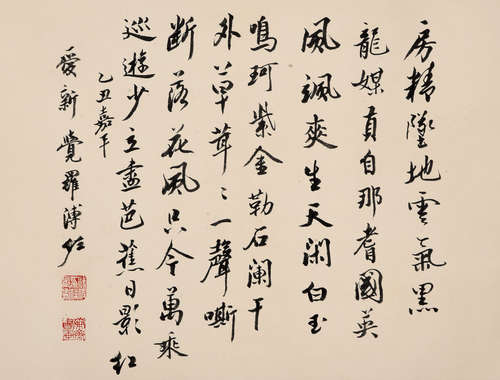 房精墜地雲氣黑
龍媒貢自那耆國英
風颯爽生天閑白玉
鳴珂紫金勒石闌干
外草茸〻一聲嘶
断落花風只今萬乘
巡遊少立盡芭蕉日影紅
乙丑嘉平
愛新覺羅溥佺